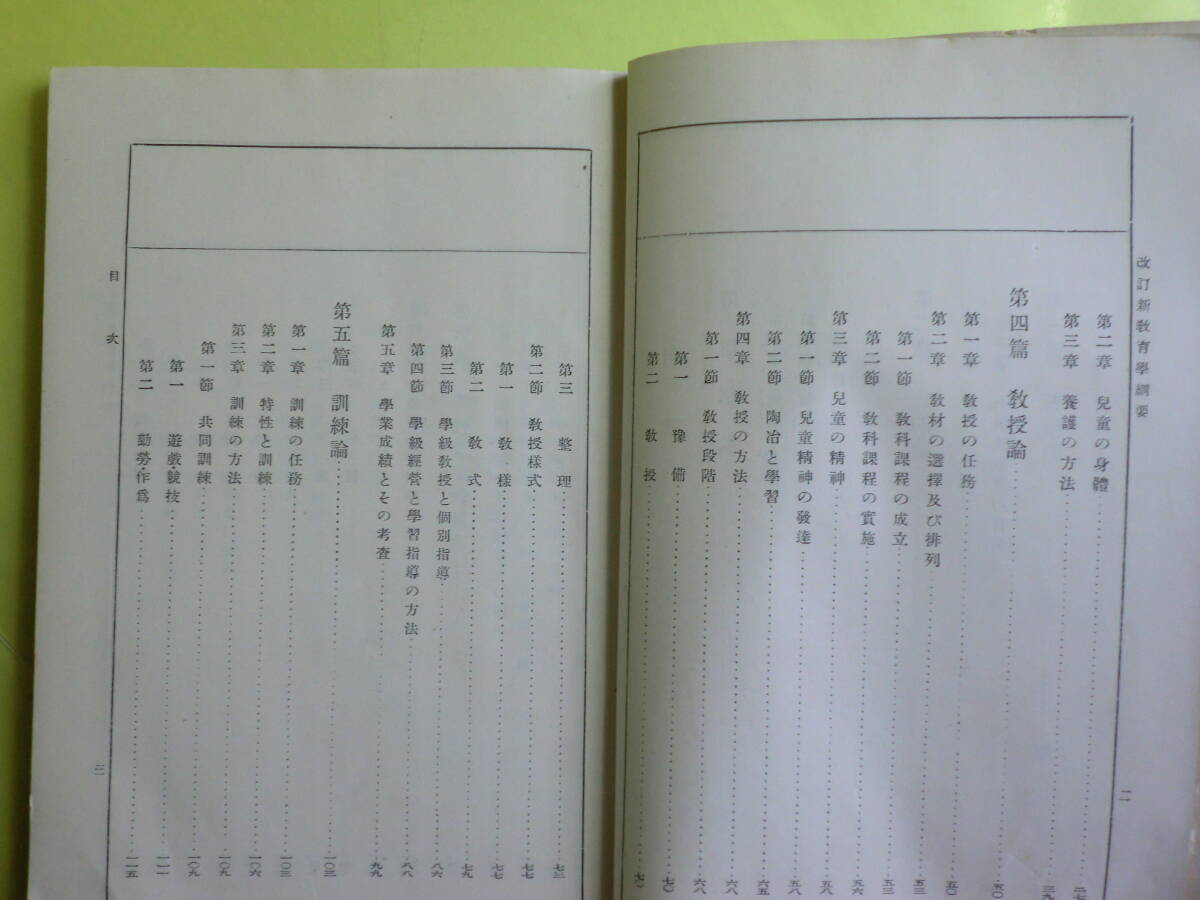 改訂新敎育學綱要
第二章　兒童の身體……二七
第三章　養護の方法……三九
第四篇　敎授論……五〇
第一章　敎授の任務……五〇
第二章　敎材の選擇及び排列……五三
第一節　敎科課程の成立……五三
第二節　敎科課程の實施……五六
第三章　兒童の精神……五八
第一節　兒童精神の發達……五八
第二節　陶冶と學習……六五
第四章　敎授の方法……六八
第一節　敎授段階……六八
第一　豫備……七〇
第二　敎授……七一
二
第三　整理……七三
第二節　敎授樣式……七七
第一　敎樣……七七
第二　敎式……七九
第三節　學級敎授と個別指導……八六
第四節　學級經營と學習指導の方法……八八
第五章　學業成績とその考査……九九
第五篇　訓練論……一〇三
第一章　訓練の任務……一〇三
第二章　特性と訓練……一〇六
第三章　訓練の方法……一〇九
第一節　共同訓練……一〇九
第一　遊戲競技……一一一
第二　勤勞作爲……一一五
目次
三